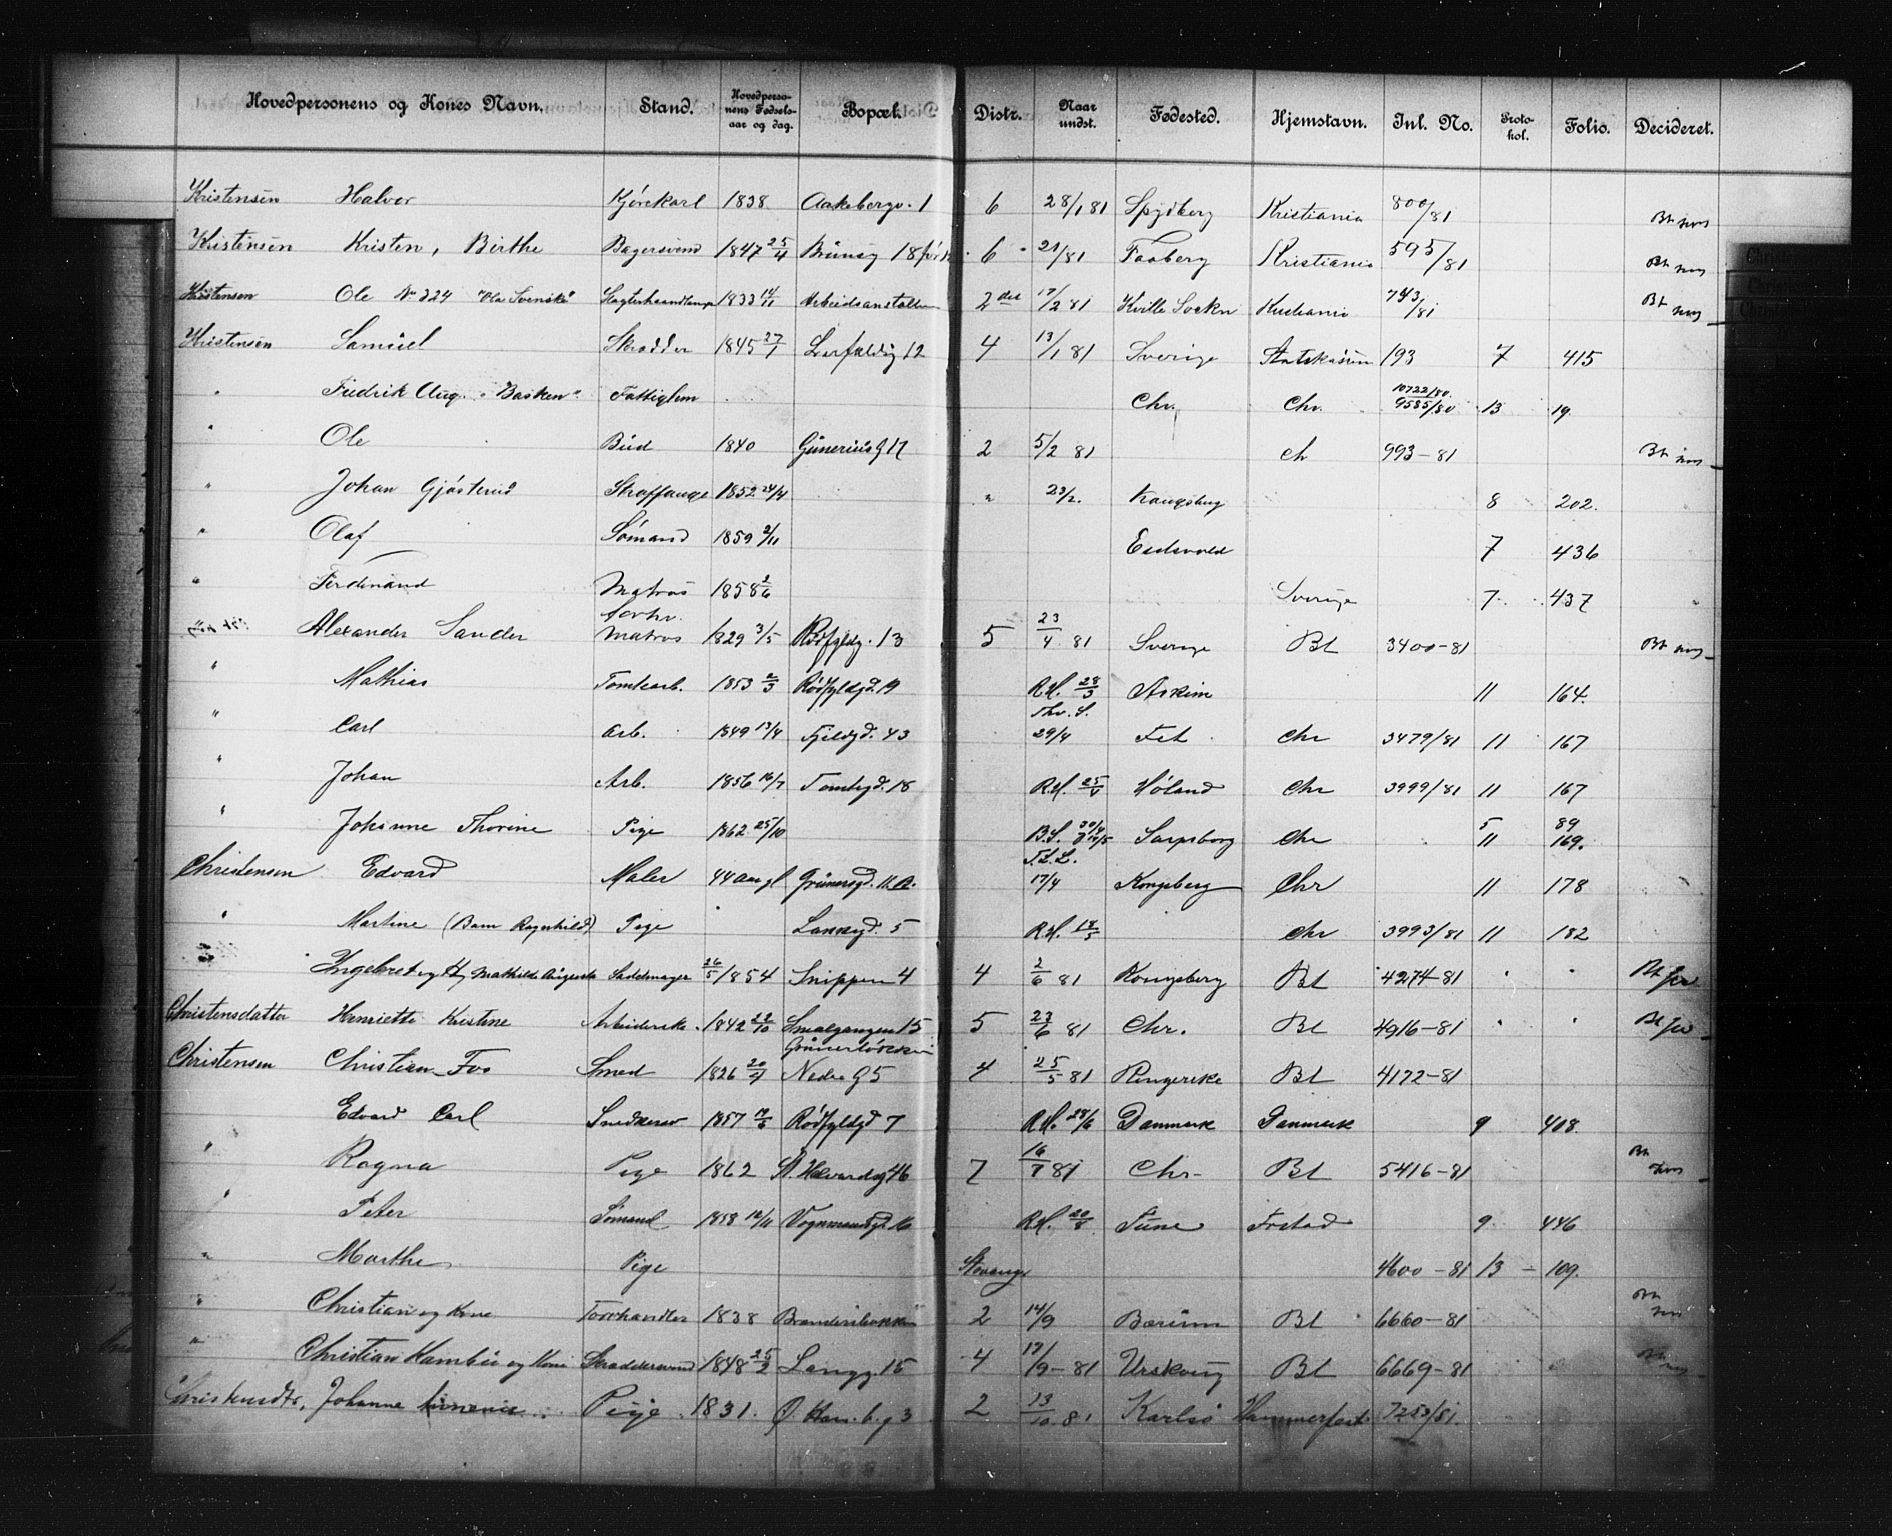 Hovedpersonens og Kones Navn. Stand. Hovedpersonens Fødselsaar og dag. Bopæl. Distr. Naar undst. Fødested. Hjemstavn. Inl. No. Protokol. Folio. Decideret.
Kristensen Halvor Kjørekarl 1838 Aakebergv. 1 6 28/1 81 Spydberg Kristiania 800/81
Kristensen Kristen, Birthe Bagersvend 1847 25/4 18 6 21/81 Faaberg Kristiania 595/81
Kristensen Ole No 224 "Ola Svenske" 1833 14/11 Arbeidsanstalten 2det 17/2 81 Kville Sockn Kristiania 743/81
Kristensen Samuel Skrædder 1845 27/1 Lerfaldsg 12 4 13/1 81 Sverige Statskassen 193 7 415
" Fredrik Aug. "Basken" Fattiglem Chr. Chr. 10722/80 9585/80 13 19.
" Ole Bud 1840 Gunerius g 17 2 5/2 81 Ch 993-81
" Johan Gjøsterud Straffange 1852 24/4 " 23/2. Kongsberg 8 202.
" Olaf Sømand 1859 2/11 Eidsvold 7 436
" Ferdinand Matros 1858 2/6 Sverige 7 437
" Alexander Sander forhv. Matros 1829 3/5 Rødfyldg. 13 5 23/4 81 Sverige Bt 3400-81
" Mathias Tomtearb. 1853 2/3 Rødfyldgd. 19 R.H. 28/3 Askim 11 164.
" Carl Arb. 1849 13/4 Fjeldgd. 43 Thv. S. 29/4 Fet Chr 3479/81 11 167
" Johan Arb. 1856 16/7 Tomtegd. 18 R.H. 25/5 Høland Chr 3999/81 11 167
" Johanne Thorine Pige 1862 25/10 B.S. Sarpsborg Chr 5 11 89 169.
Christensen Edvard Maler 44 aar gl Grünersgd. 11.a. F.L.L. 17/4 Kongsberg Chr 11 178
" Martine (Barn Ragnhild) Pige Lakkegd. 5 R.H. 18/5 Chr 3993/81 11 182
" Ingebret og H. Mathilde Augusta Sadelmager 26/5 1854 Snippen 4 4 2/6 81 Kongsberg Bt 4274-81
Christensdatter Henriette Kristine Arbeiderske 1842 22/10 Smalgangen 15 5 23/6 81 Chr. Bt 4916-81
Christensen Christian Fos Smed 1826 20/9 Grünerløkken Nedre g 5 4 25/5 81 Ringerike Bt 4172-81
Edvard Carl Snedkersv 1857 19/6 Rødfyldgd 7 R.H. 28/6 Danmark Danmark 9 408.
" Ragna Pige 1862 St. Halvardsg 46 7 16/7 81 Chr- Bt 5416-81
" Peter Sømand 1858 12/11 Vognmandsgd. 16 R.H. 20/8 Tune Frstad 9 446
" Marthe Pige Stavanger 4600-81 13 - 109.
" Christian og Kone Torvhandler 1838 2 14/9 Bærum Bt 6660-81
" Christian og Kone Skræddersvend 1848 25/2 Langg. 15 4 17/9-81 Urskoug Bt 6669-81
Johanne Pige 1831. 3 2 13/10 81 Karlsø Hammerfest 7253/81.